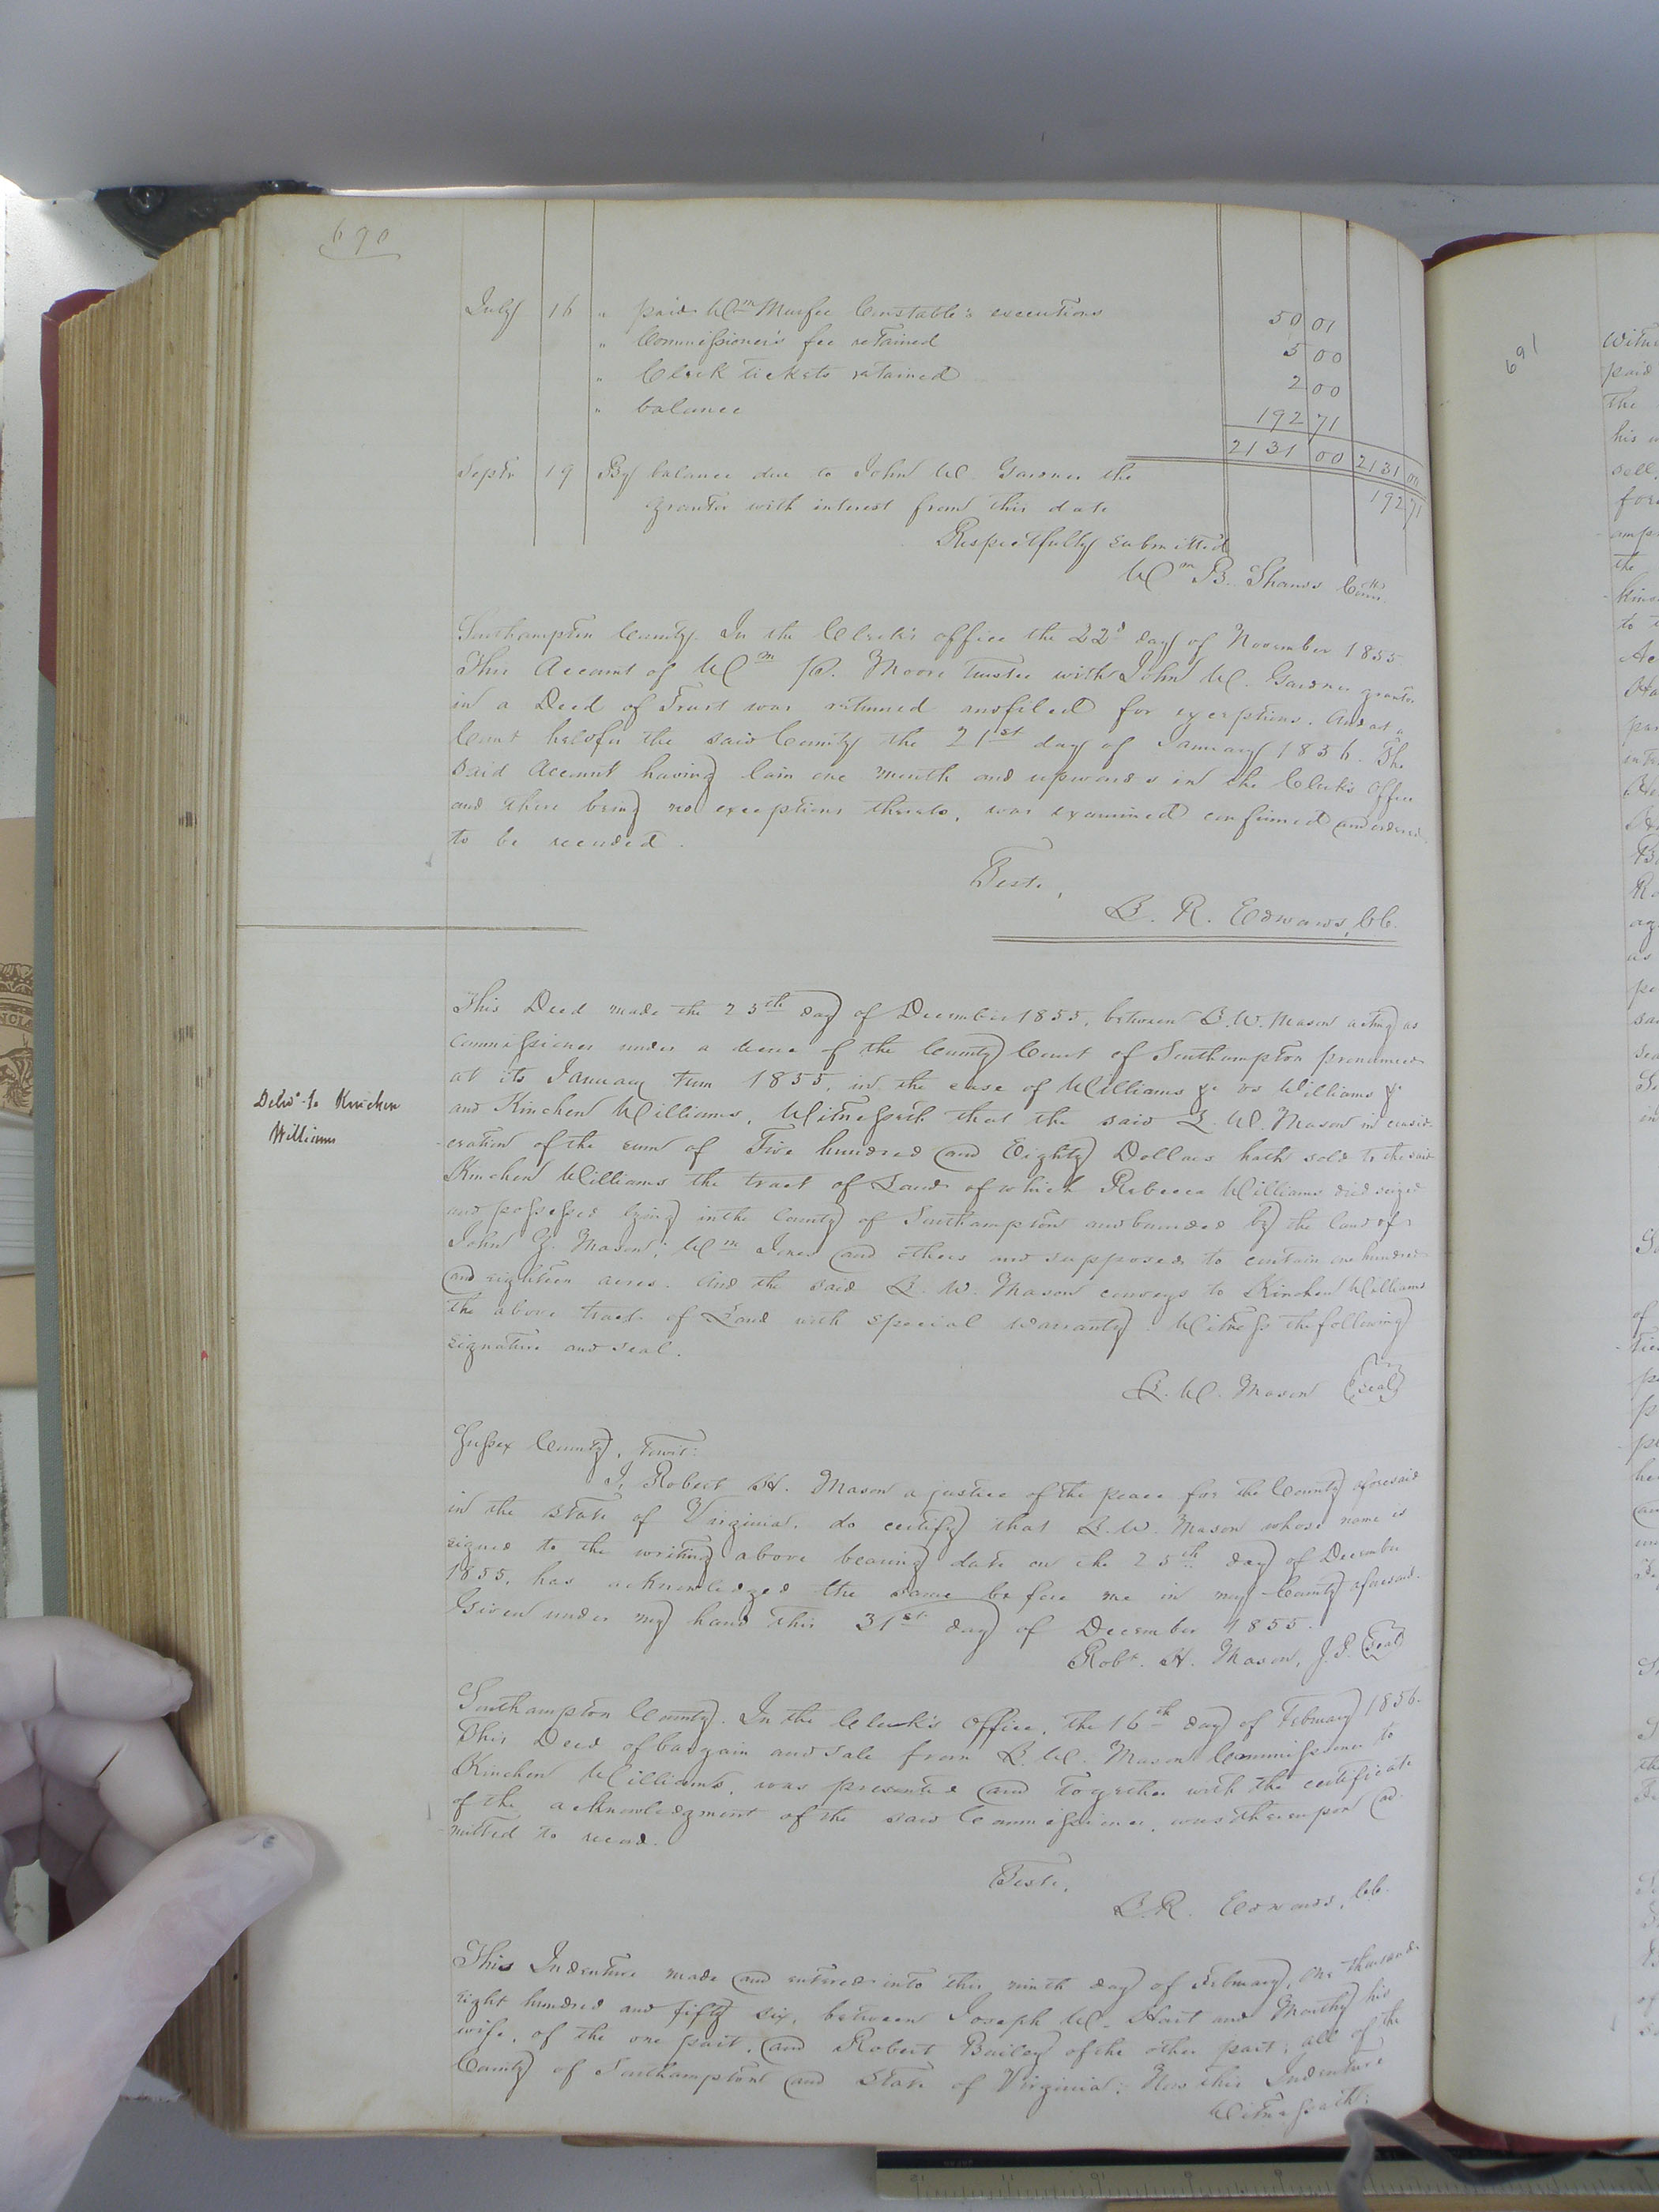 690
July 16 " paid Wm Murfee Constable's executions 50 01
" Commissioner's fee retained 5 00
" Clerk tickets retained 2 00
" balance 192 71
2131 00 2131 00
Septr 19 By balance due to John W. Gardner the 192 71
grantor with interest from this date
Respectfully submitted
Wm B. Shands Comr.
Southampton County. In the Clerk's office the 22d day of November 1855.
This Account of Wm P. Moore Trustee with John W. Gardner grantor
in a Deed of Trust was returned and filed for exceptions. And at a
Court held for the said County the 21st day of January 1856. The
said Account having lain one month and upwards in the Clerk's office
and there being no exceptions thereto, was examined confirmed and ordered
to be recorded.
Teste,
L. R. Edwards, C.C.
Delvd. to Kinchen
Williams
This Deed made the 25th day of December 1855, between L. W. Mason acting as
Commissioner under a decree of the County Court of Southampton pronounced
at its January Term 1855, in the case of Williams &c vs Williams &c
and Kinchen Williams, Witnesseth that the said L. W. Mason in consid-
-eration of the sum of Five hundred and Eighty Dollars hath sold to the said
Kinchen Williams the tract of Land of which Rebecca Williams died seized
and possessed lying in the County of Southampton and bounded by the land of
John Y. Mason, Wm Ines and others and supposed to contain one hundred
and eighteen acres. And the said L. W. Mason conveys to Kinchen Williams
the above tract of Land with special warranty. Witness the following
signature and seal.
L. W. Mason (Seal)
Sussex County, Towit:
I, Robert H. Mason a justice of the peace for the County aforesaid
in the State of Virginia, do certify that L. W. Mason whose name is
signed to the writing above bearing date on the 25th day of December
1855, has acknowledged the same before me in my County aforesaid.
Given under my hand this 31st day of December 1855.
Robt. H. Mason, J.P. (Seal)
Southampton County. In the Clerk's Office, the 16th day of February 1856.
This Deed of bargain and sale from L. W. Mason Commissioner to
Kinchen Williams, was presented and together with the certificate
of the acknowledgment of the said Commissioner, was thereupon ad-
-mitted to record.
Teste,
L. R. Edwards, C.C.
This Indenture made and entered into this ninth day of February, one thousand
eight hundred and fifty six, between Joseph W. Hart and Marthy his
wife, of the one part, and Robert Bailey of the other part; all of the
County of Southampton and State of Virginia: Now this Indenture
Witnesseth:
691